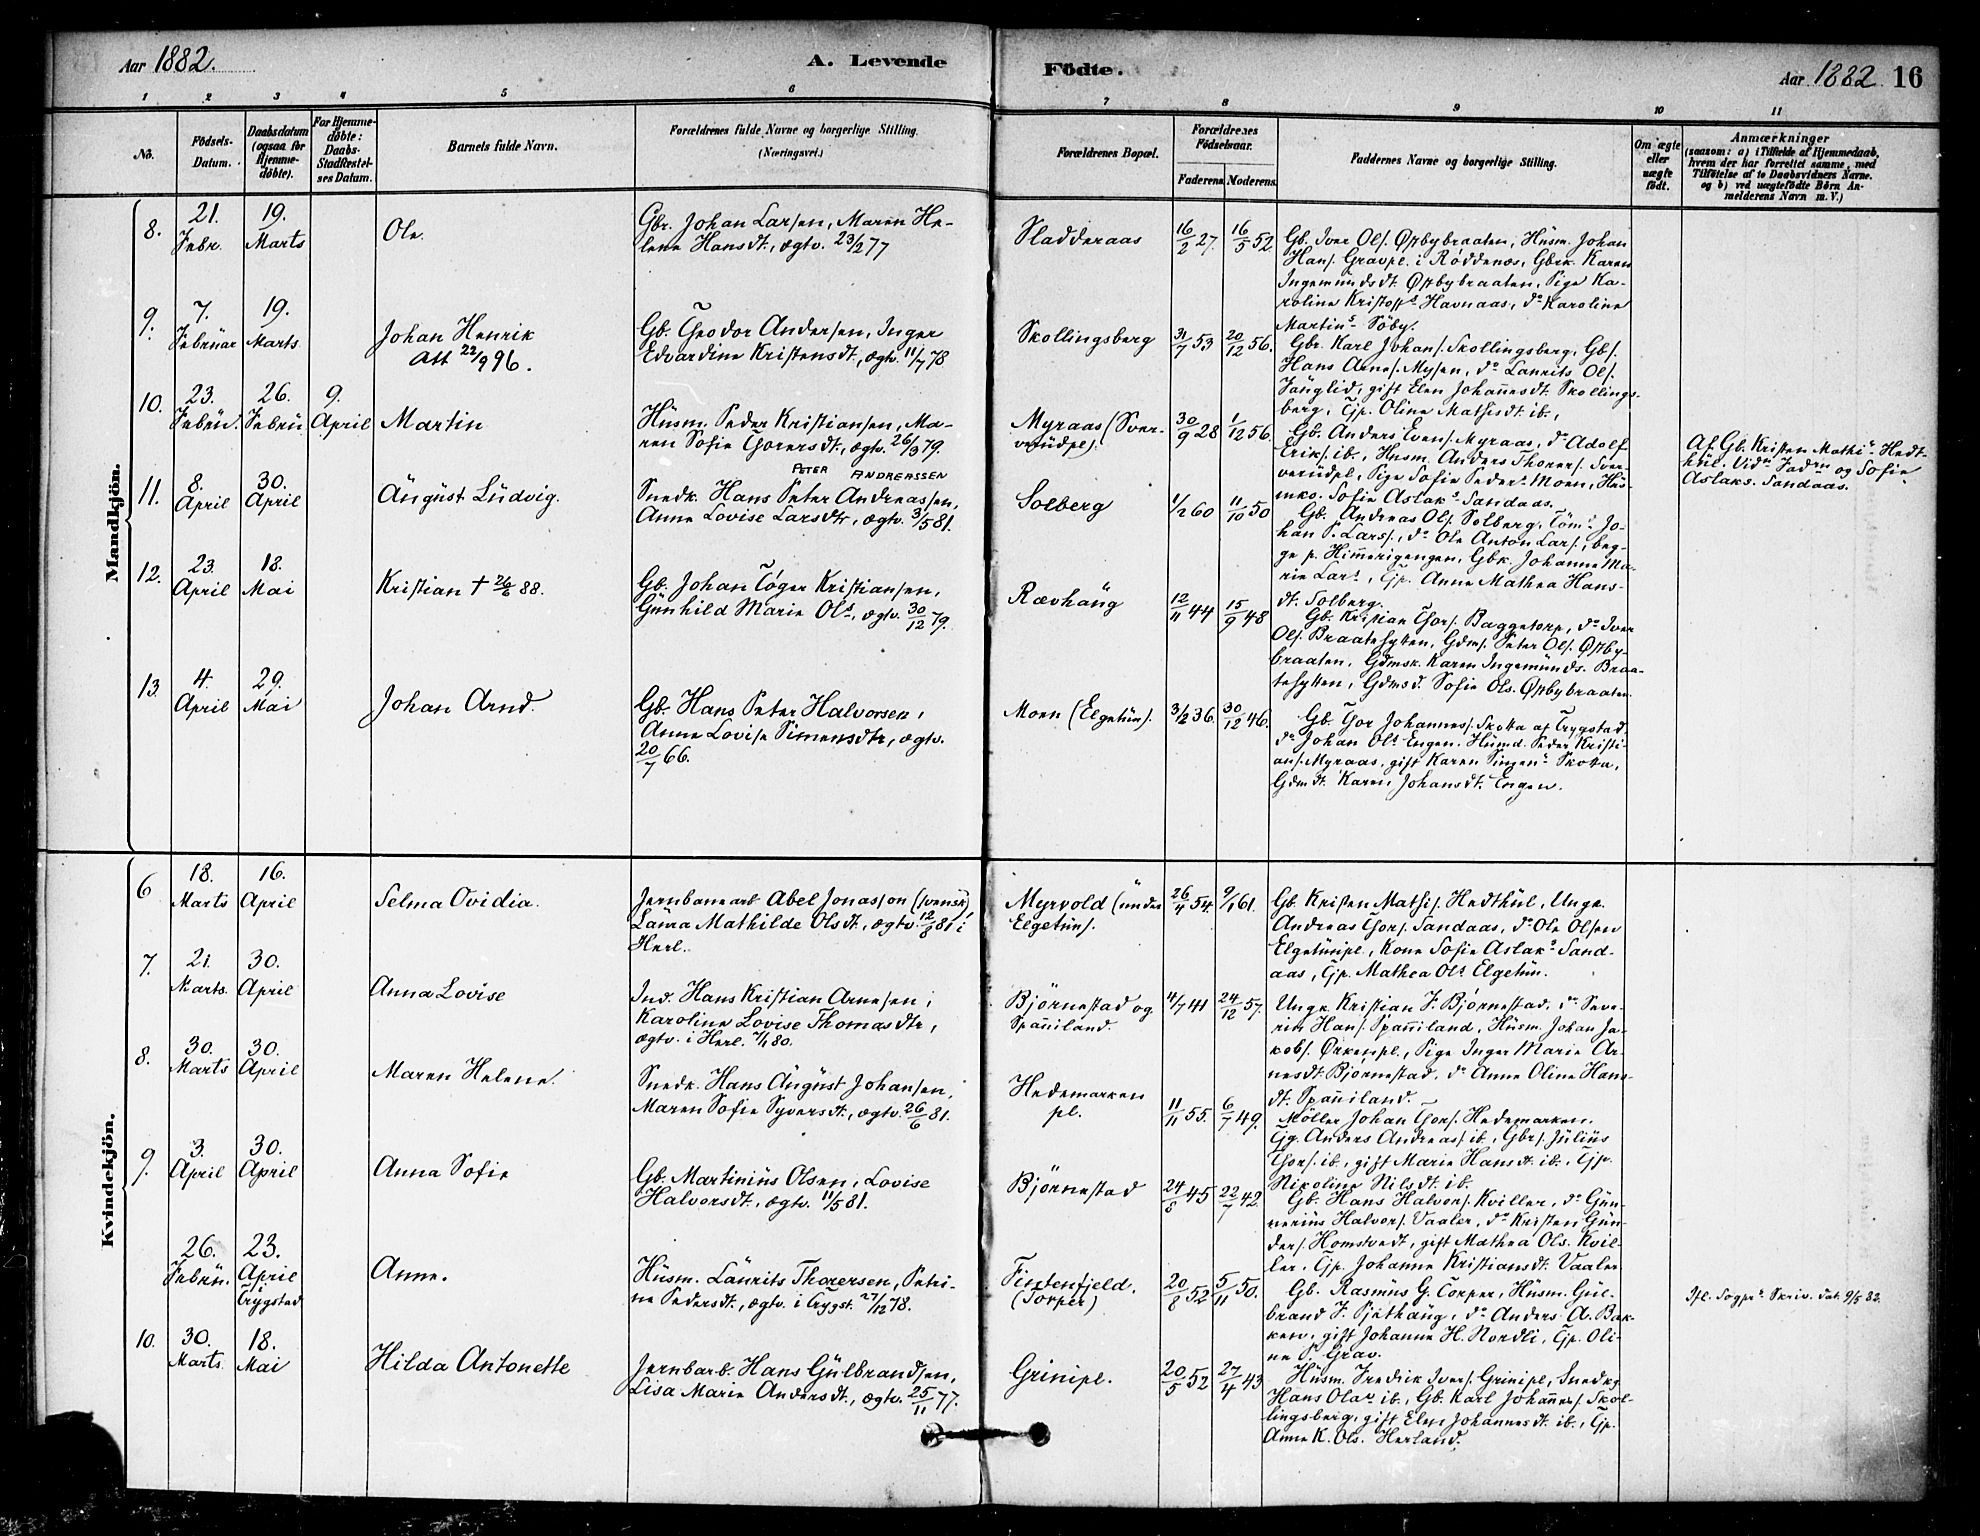 Aar 1882.
A. Levende
Födte.
Aar 1882 16
1 2 3 4 5 6 7 8 9 10 11
No.
Födsels-
Datum.
Daabsdatum
(ogsaa for
Hjemme-
döbte).
For Hjemme-
döbte:
Daabs-
Stadfæstel-
ses Datum.
Barnets fulde Navn.
Forældrenes fulde Navne og borgerlige Stilling.
(Næringsvei.)
Forældrenes Bopæl.
Forældrenes
Födselsaar.
Faderens Moderens.
Faddernes Navne og borgerlige Stilling.
Om ægte
eller
uægte
födt.
Anmærkninger
(saasom: a) i Tilfælde af Hjemmedaab,
hvem der har forrettet samme, med
Tilföielse af to Daabsvidners Navne.
og b) ved uægtefödte Börn An-
melderens Navn m. V.)
Mandkjön.
8.
21.
Febr.
19.
Marts
Ole.
Gbr. Johan Larsen, Maren He-
lene Hansdt., ægtv. 23/2 77
Sladderaas
16/2 27.
16/5 52
Gb. Iver Ols. Østbybraaten, Husm. Johan
Hans. Gravpl. i Røddenæs, Gbrk. Karen
Ingemundsdt. Østbybraaten, Pige Ka-
roline Kristoffs Havnaas, do Karoline
Martins Söby.
9.
7.
Februar
19.
Marts
Johan Henrik
Att 22/9 96.
Gb. Theodor Andersen, Inger
Edvardine Kristensdt, ægtv. 11/7 78
Skollingsberg
31/7 53
20/12 56.
Gbr. Karl Johans. Skollingsberg, Gbs.
Hans Arnes. Mysen, do Laurits Ols.
gift Elen Johannesdt. Skollings-
berg, Tjp. Oline Mathisdt ib.
10.
23.
Febru.
26.
Febru.
9.
April
Martin
Husm. Peder Kristiansen, Ma-
ren Sofie Thorersdt, ægtv. 26/3 79.
Myraas (Sver-
verudpl).
30/9 28
1/12 56.
Gb. Anders Evens. Myraas, do Adolf
Eriks. ib., Husm. Anders Thorers. Sver-
verudpl, Pige Sofie Peders Moen, Hus-
mks. Sofie Aslaks Sandaas.
Af Gb. Kristen Mathis Hedt-
hul. Vidn Fadrn og Sofie
Aslaks. Sandaas.
11.
8.
April
30.
April
August Ludvig.
PETER ANDREASSEN
Snedk. Hans Peter Andreassen,
Anne Lovise Larsdtr, ægtv. 3/5 81.
Solberg
1/2 60
11/10 50
Gb. Andreas Ols. Solberg, Töm. Jo-
han P. Lars., do Ole Anton Lars., beg-
ge p. Himmerigengen, Gbk. Johanne Ma-
rie Lars, Tjp. Anne Mathea Hans-
dt. Solberg.
12.
23.
April
18.
Mai
Kristian † 26/6 88.
Gb. Johan Töger Kristiansen,
Gunhild Marie Ols, ægtv. 30/12 79.
Rævhaug
12/11 44
15/9 48
Gb. Kristian Thors. Baggetorp, do Iver
Ols. Braatehytten, Gdms. Peter Ols. Østby-
braaten, Gdmsk. Karen Ingemunds. Braa-
tehytten, Gdmsd. Sofie Ols. Østbybraaten.
13.
4.
April
29.
Mai
Johan Arnd.
Gb. Hans Peter Halvorsen,
Anne Lovise Simensdtr, ægtv.
20/7 66.
Moen (Elgetun).
3/2 36.
30/12 46.
Gb. Thor Johannes. Skotta af Trygstad,
do Johan Ols Engen. Husmd. Peder Kristi-
ans. Myraas, gift Karen Skotta,
Gdmdt. Karen Johansdt. Engen.
Kvindekjön.
6
18.
Marts
16.
April
Selma Ovidia.
Jernbanearb Abel Jonasson (svensk),
Laura Mathilde Olsdt, ægtv. 12/8 81 i
Herl.
Myrvold (under
Elgetun).
26/4 54.
9/1 61.
Gb. Kristen Mathis. Hedthul, Ungk.
Andreas Thors. Sandaas, do Ole Olsen
Elgetunpl., Kone Sofie Aslaks Sand-
aas, Tjp. Mathea Ols Elgetun.
7.
21.
Marts
30.
April
Anna Lovise
Ind. Hans Kristian Arnesen,
Karoline Lovise Thomasdtr,
ægtv. i Herl. 7/1 80.
Björnestad og
Spanniland.
4/7 41
24/12 57.
Ungk Kristian J. Björnestad, do Seve-
rin Hans. Spanniland, Husm. Johan Ja-
kobs. Ørkenpl., Pige Inger Marie Ar-
nesdt Björnestad, do Anne Oline Hans-
dt. Spanniland.
8.
30.
Marts
30.
April
Maren Helene.
Snedk. Hans August Johansen,
Maren Sofie Syversdt., ægtv. 26/6 81.
Hedemarken
pl.
11/11 55.
6/7 49.
Möller Johan Thors. Hedemarken,
Tjg. Anders Andreass. ib., Gbrs. Julius
Thors. ib., gift Marie Hansdt. ib., Tjp.
Nikoline Nilsdt. ib.
9.
3.
April
30.
April
Anna Sofie
Gb. Martinius Olsen, Lovise
Halvorsdt, ægtv. 11/5 81.
Björnestad
24/8 45
22/7 42.
Gb. Hans Halvors. Kviller, do Gun-
nerius Halvors. Vaaler, do Kristen Gun-
ders. Homstvedt, gift Mathea Ols. Kvil-
ler, Tjp. Johanne Kristiansdt. Vaaler
26.
Febru.
23.
April
Trygstad
Anne.
Husm. Laurits Thorersen, Petri-
ne Pedersdt., ægtv. i Trygst. 27/12 78.
Fintenfjeld.
(Torper)
20/8 52
5/11 50.
Gb. Rasmus G. Torper, Husm. Gul-
brand J. Pjethaug, do Anders A. Bak-
ken, gift Johanne H. Nordli, Tjp. Oli-
ne P. Grav.
Ifl. Sogpr Skriv. dat. 9/5 82.
10.
30.
Marts
18.
Mai
Hilda Antonette
Jernbarb. Hans Gulbrandsen,
Lisa Marie Andersdt., ægtv. 25/11 77.
Grinipl.
20/5 52
27/4 43
Husm. Fredrik Ivers. Grinipl, Snedkg
Hans Olas ib., Gb. Karl Johannes. Skol-
lingsberg, gift Elen Johannesdt. ib., Tjp.
Anne K. Ols. Herland.